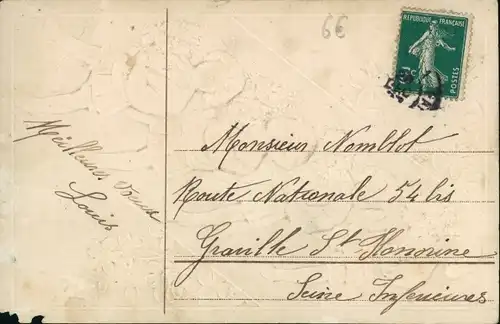 6€
REPUBLIQUE FRANÇAISE
POSTES
Meilleures
Louis
Monsieur Nomblot
Route Nationale 54 bis
Graville St Honorine
Seine Inferieures